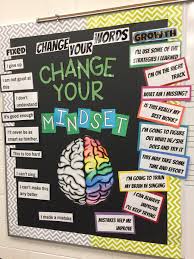 FIXED
CHANGE YOUR WORDS
GROWTH
CHANGE
YOUR
MINDSET
I give up
I am not good at
this
I don't
understand
It's good
enough
I'll never be as
smart as him/her.
This is too hard
I can't sing
I can't make this
any better
I made a mistake
I'LL USE SOME OF THE
STRATEGIES I LEARNED
I'M ON THE RIGHT
TRACK
WHAT AM I MISSING?
IS THIS REALLY MY
BEST WORK?
I'M GOING TO FIGURE
OUT WHAT
THIS MAY TAKE SOME
TIME AND EFFORT
I'M GOING TO TRAIN
MY BRAIN IN SINGING
I CAN ALWAYS
IMPROVE
I'LL KEEP TRYING
MISTAKES HELP ME
IMPROVE